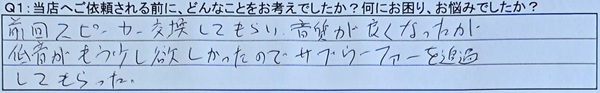 Q1:当店へご依頼される前に、どんなことをお考えでしたか?何にお困り、お悩みでしたか?
前回スピーカー交換してもらい、音質が良くなったが
低音がもう少し欲しかったのでサブウーファーを追過
してもらった。